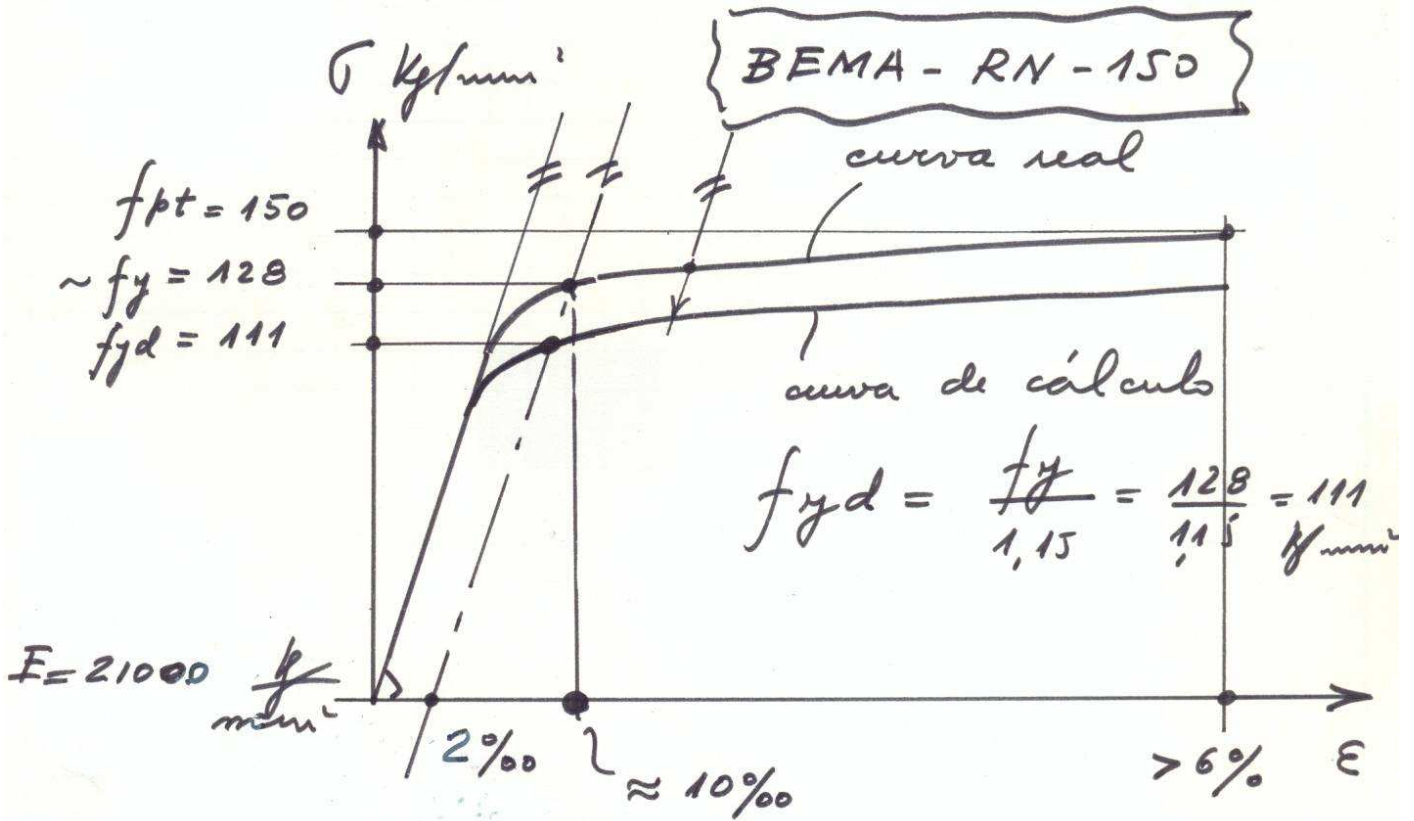 BEMA - RN - 150
σ kg/mm²
curva real
fpt = 150
~ fy = 128
fyd = 111
curva de cálculo
fyd = fy / 1,15 = 128 / 1,15 = 111 kg/mm²
E = 21000 kg/mm²
2‰
≈ 10‰
> 6%
ε